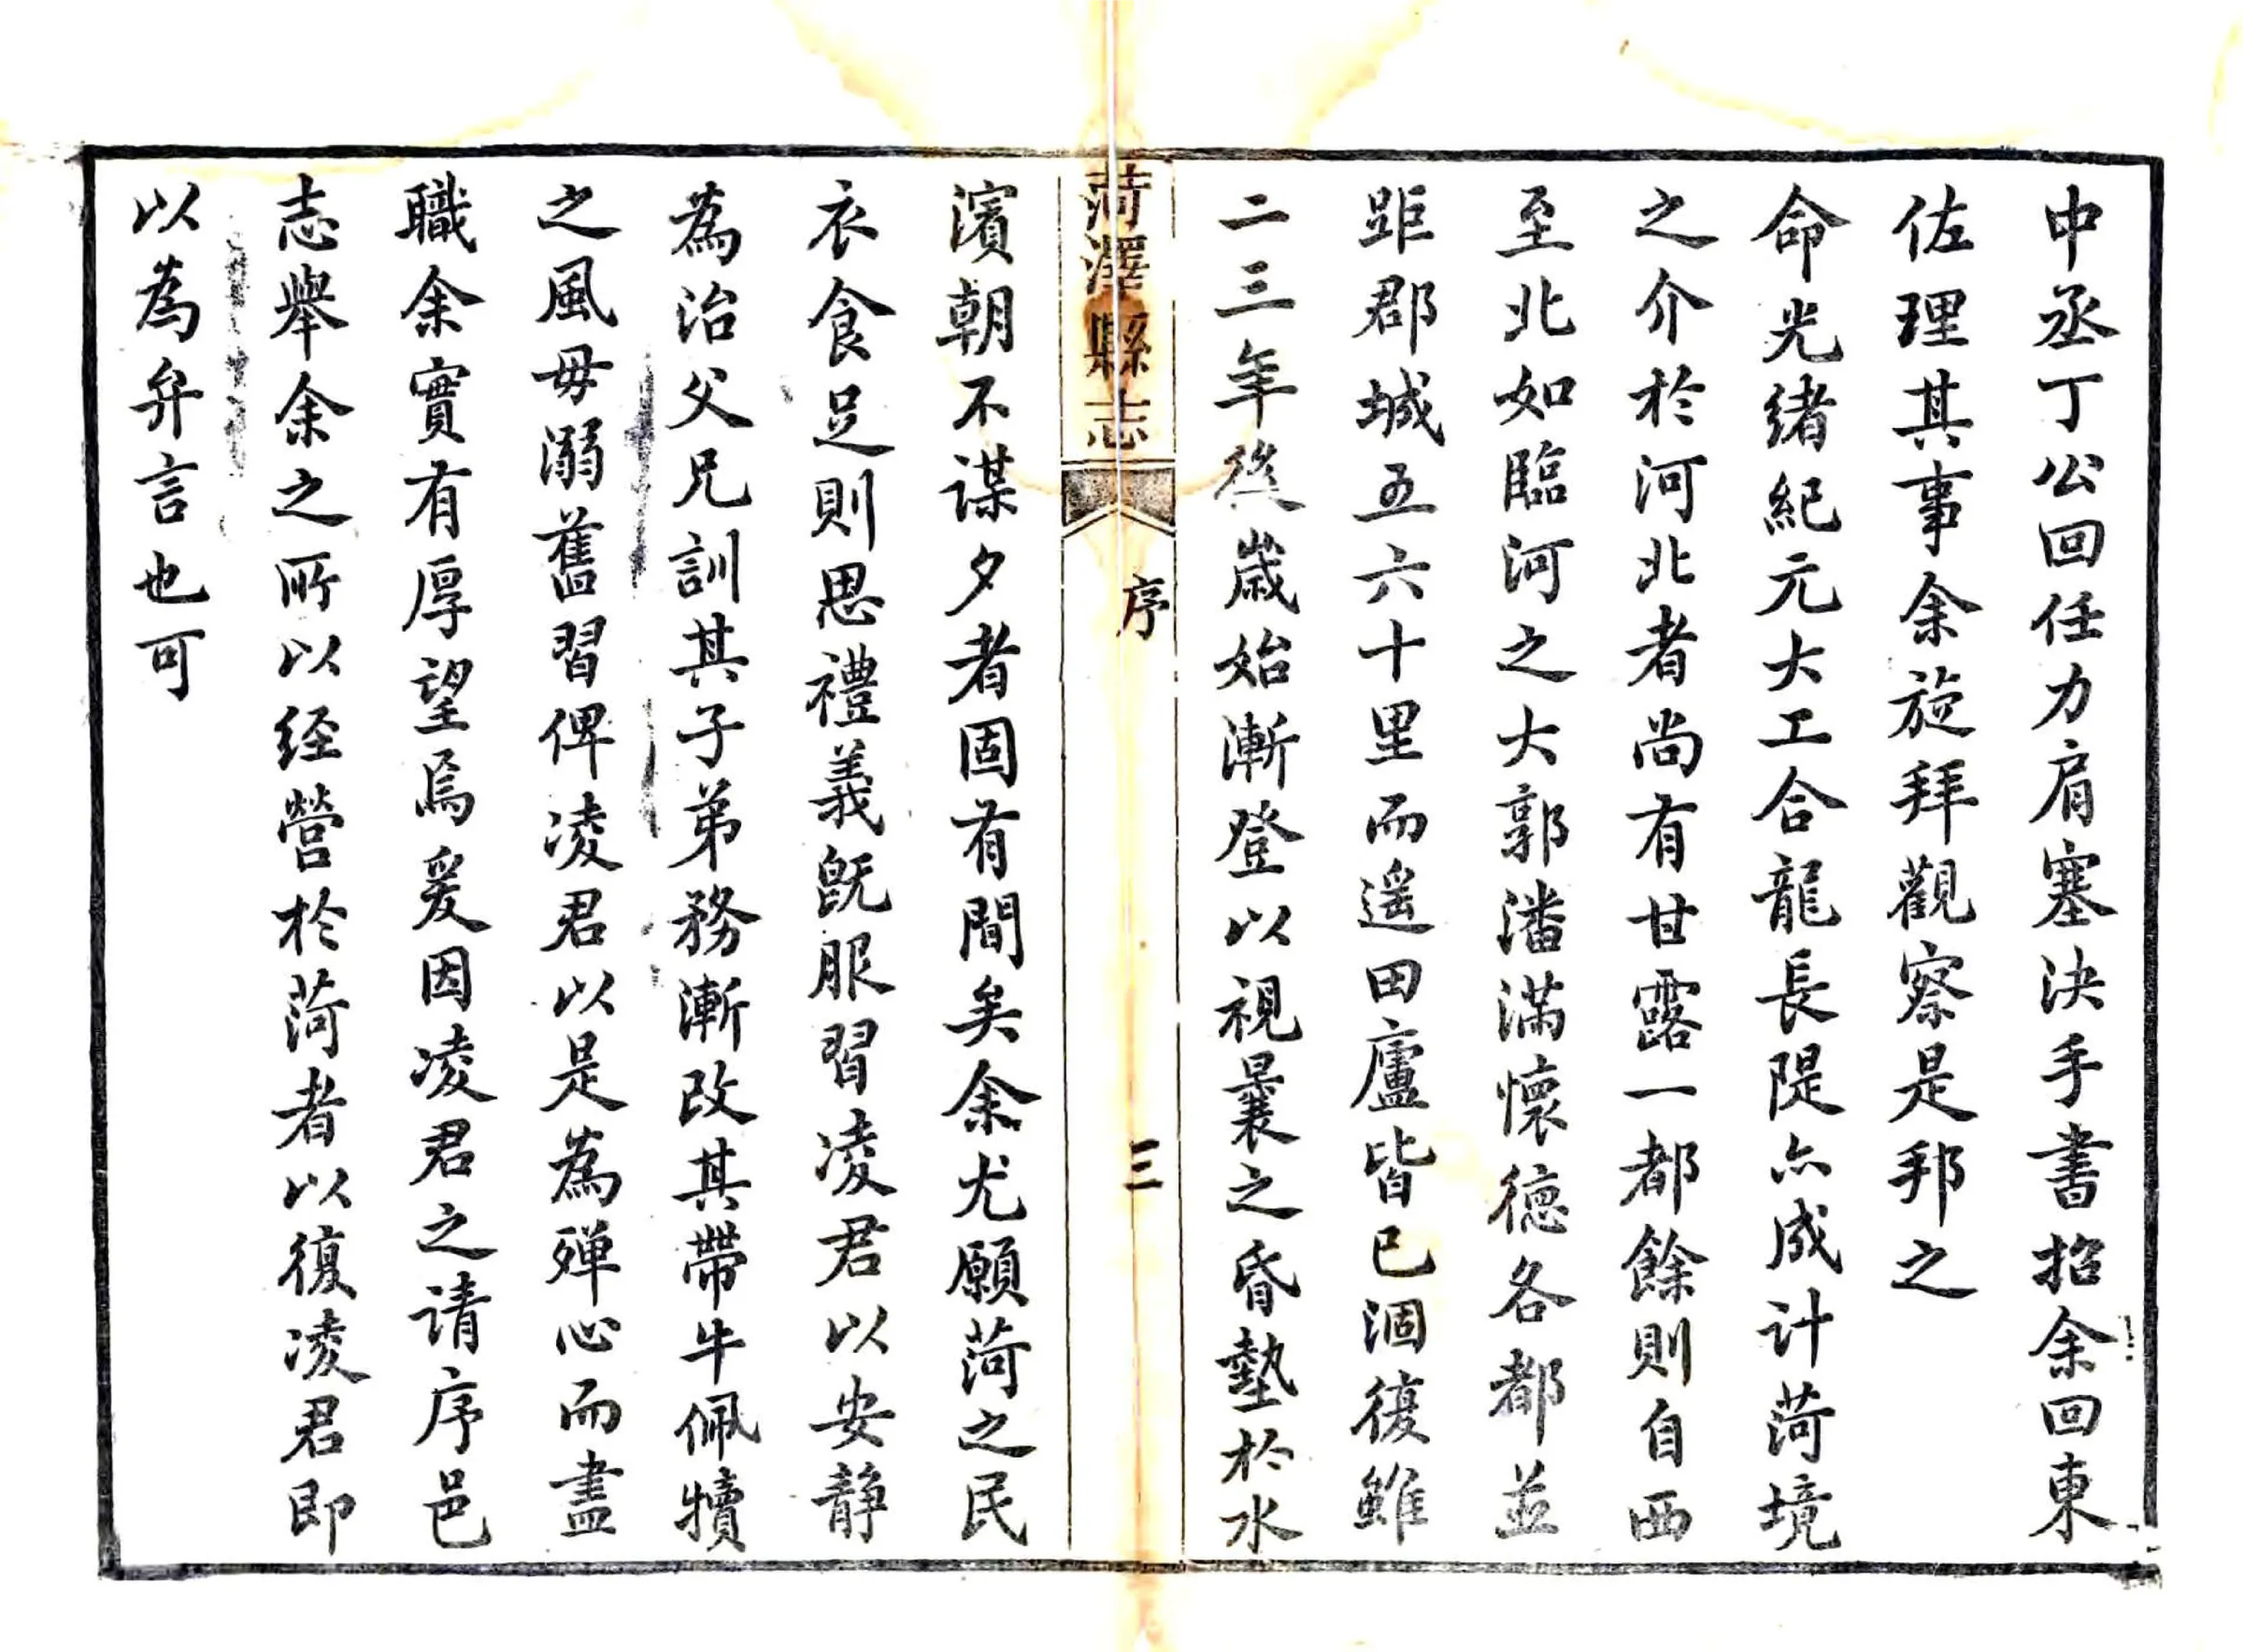 中丞丁公回任力肩塞決手書招余回東
佐理其事余旋拜觀察是邦之
命光緒紀元大工合龍長隄亦成計菏境
之介於河北者尚有甘露一都餘則自西
至北如臨河之大郭潘滿懷德各都並
距郡城五六十里而遥田廬皆已涸復雖
二三年後歲始漸登以視曩之昏墊於水
菏澤縣志
序
三
濱朝不謀夕者固有間矣余尤願菏之民
衣食足則思禮義旣服習凌君以安静
為治父兄訓其子弟務漸改其帶牛佩犢
之風毋溺舊習俾凌君以是為殫心而盡
職余實有厚望焉爰因凌君之请序邑
志舉余之所以经營於菏者以復凌君即
以為弁言也可